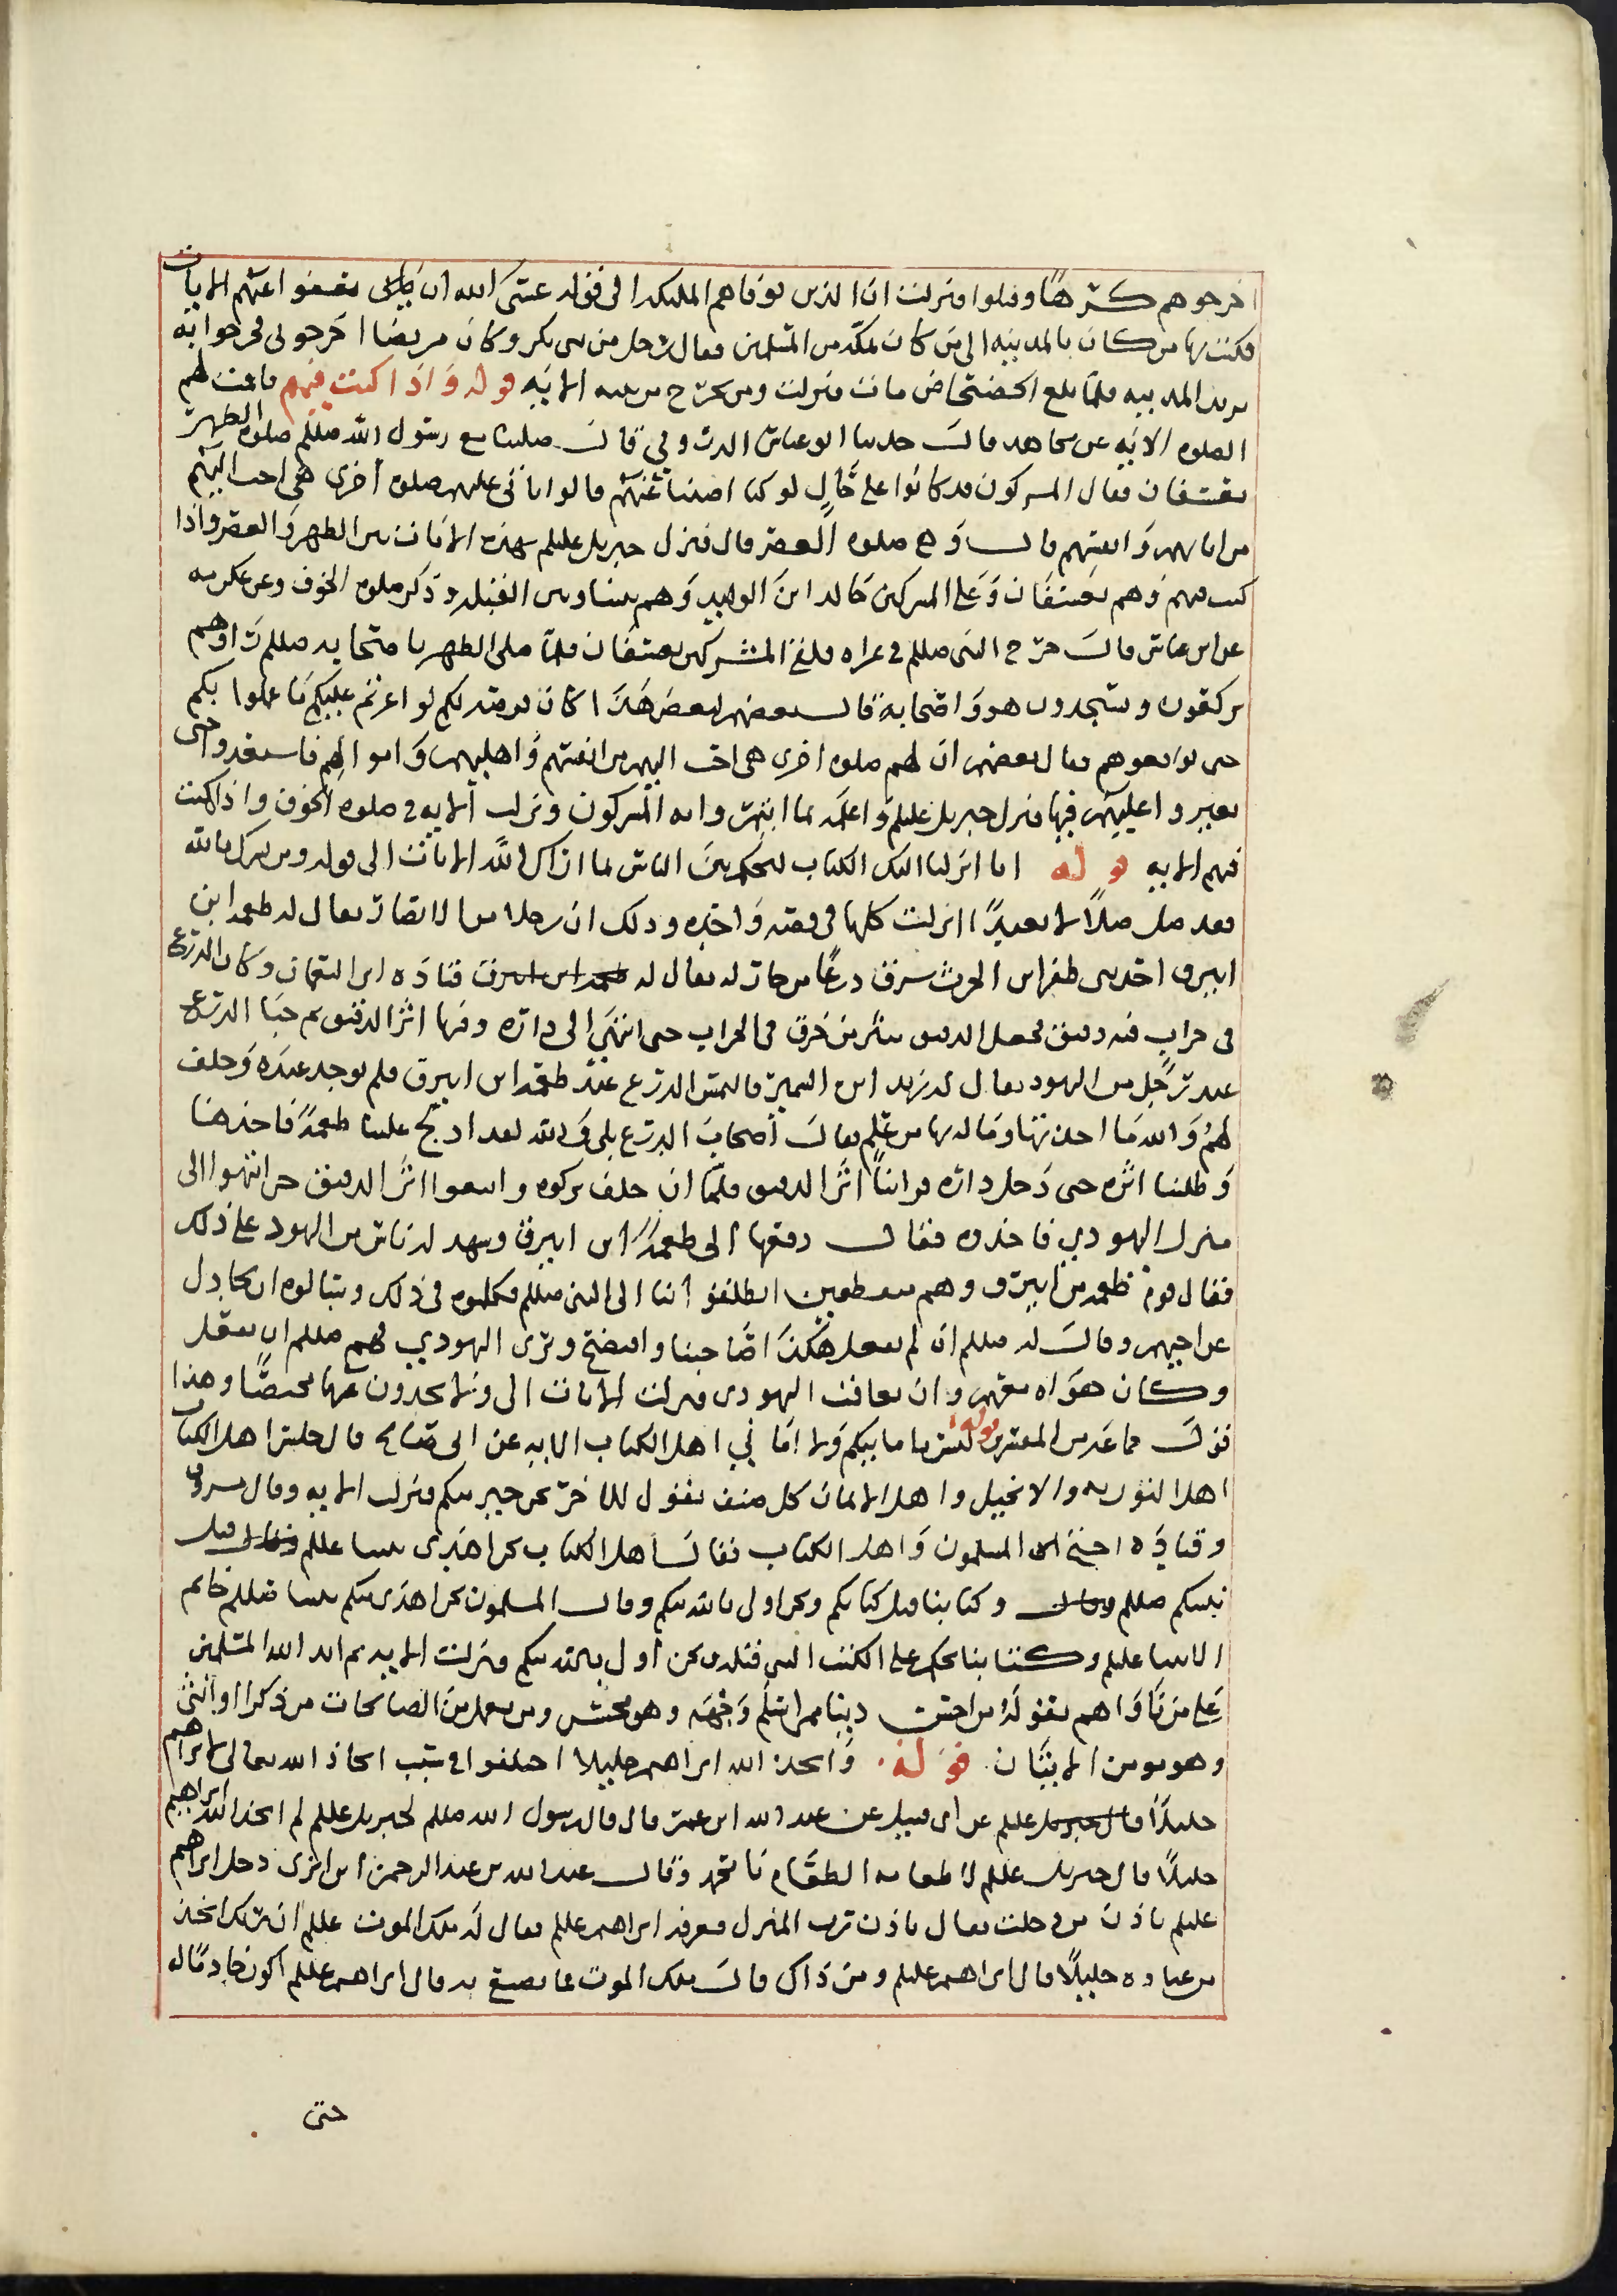 اخرجوهم كرهًا وقتلوا فنزلت ان الذين توفاهم الملئكة الى قوله عسى الله ان يعفوا عنهم الايات
فكتب بها من كان بالمدينه الى من كان بمكة من المسلمين فقال رجل من بني بكر وكان مريضا اخرجوني فخرجوا به
يريد المدينه فلما بلغ الحصحاص مات فنزلت ومن يخرج من بيته الايه قوله واذا كنت فيهم فاقمت لهم
الصلوه الايه عن مجاهد قال حدثنا ابو عياش الزرقي قال صلينا مع رسول الله صللم صلوه الظهر
بعسفان فقال المشركون قد كانوا على حالٍ لو كنا اصبنا غرتهم قالوا تاتي عليهم صلوه اخرى هي احب اليهم
من ابائهم وانفسهم قال وهي صلوه العصر قال فنزل جبريل عليلم بهذه الايات بين الظهر والعصر واذا
كنت فيهم وهم بعسفان وعلى المشركين خالد ابن الوليد وهم بيننا وبين القبله وذكر صلوه الخوف وعن عكرمه
عن ابن عباس قال خرج النبي صللم في غزاه فلقي المشركين بعسفان فلما صلى الظهر باصحابه صللم راوهم
يركعون ويسجدون هو واصحابه قال بعضهم لبعض هذا كان فرصه لكم لو اغرتم عليكم ما علموا بكم
حتى تواقعوهم فقال بعضهم ان لهم صلوه اخرى هي احب اليهم من انفسهم واهليهم واموالهم فاستعدوا حتى
تغيروا عليهم فيها فنزل جبريل عليلم واعلمه بما ائتمر وابه المشركون ونزلت الايه في صلوه الخوف واذا كنت
فيهم الايه قوله انا انزلنا اليك الكتاب لتحكم بين الناس بما اراك الله الايات الى قوله ومن يشرك بالله
فقد ضل ضلالا بعيدًا انزلت كلها في قصه واحده وذلك ان رجلا من الانصار يقال له طعمه ابن
ابيرق احد بني ظفر ابن الحرث سرق درعًا من جار له يقال له قتاده ابن النعمان وكان الدرع
في جراب فيه دقيق فجعل الدقيق ينتثر من خرق في الجراب حتى انتهى الى داره وفيها اثر الدقيق ثم خبا الدرع
عند رجل من اليهود يقال له زيد ابن السمير فالتمس الدرع عند طعمه ابن ابيرق فلم توجد عنده وحلف
لهم والله ما اخذتها وماله بها من علم فقال اصحاب الدرع بلى والله لقد ادلج علينا طعمه فاخذها
وطلبنا اثره حتى دخل داره فراينا اثر الدقيق فلما ان حلف تركوه واتبعوا اثر الدقيق حتى انتهوا الى
منزل اليهودي فاخذوه فقال دفعها الى طعمه ابن ابيرق وشهد له ناس من اليهود على ذلك
فقال قوم طعمه بن ابيرق وهم انطلقوا بنا الى النبي صللم فكلموه في ذلك وسالوه ان يجادل
عن اصحابهم وقال له صللم ان لم تفعل هلك صاحبنا وافتضح وبرى اليهودي فهم صللم ان يفعل
وكان هواه معهم وان يعاقب اليهودي فنزلت الايات الى ولا يجدون عنها محيصًا وهذا
قول جماعه من المفسرين قوله ليس بامانيكم ولا اماني اهل الكتاب الايه عن ابي صالح قال جلس اهل الكتاب
اهل التوريه والانجيل واهل الايمان كل صنف يقول للاخر نحن خير منكم فنزلت الايه وقال مسروق
وقتاده احتج المسلمون واهل الكتاب فقال اهل الكتاب نحن اهدى نبينا عللم قبل
نبيكم صللم وكتابنا قبل كتابكم ونحن اولى بالله منكم وقال المسلمون نحن اهدى منكم نبينا صللم خاتم
الانبيا عليلم وكتابنا يحكم على الكتب التي قبله ونحن اولى بالله منكم فنزلت الايه ثم ايد الله المسلمين
على من ناواهم بقوله ومن احسن دينا ممن اسلم وجهه وهو محسن ومن يعمل من الصالحات من ذكر او انثى
وهو مومن الايتان. قوله. واتخذ الله ابراهيم خليلا اختلفوا في سبب اتخاذ الله تعالى ابراهيم
خليلا عن ابي قبيل عن عبد الله ابن عمر قال قال رسول الله صللم لجبريل عللم لم اتخذ الله ابراهيم
خليلًا قال جبريل عللم لاطعامه الطعام يا محمد وقال عبد الله بن عبد الرحمن ابن ابزى دخل ابراهيم
عليلم باذن من دخلت فقال باذن رب المنزل فعرفه ابراهيم عللم فقال له ملك الموت عللم ان ربك اتخذ
من عباده خليلًا قال ابراهيم عليلم ومن ذاك قال ملك الموت ما تصنع به قال ابراهيم عللم اكون خادمًا له
حتى